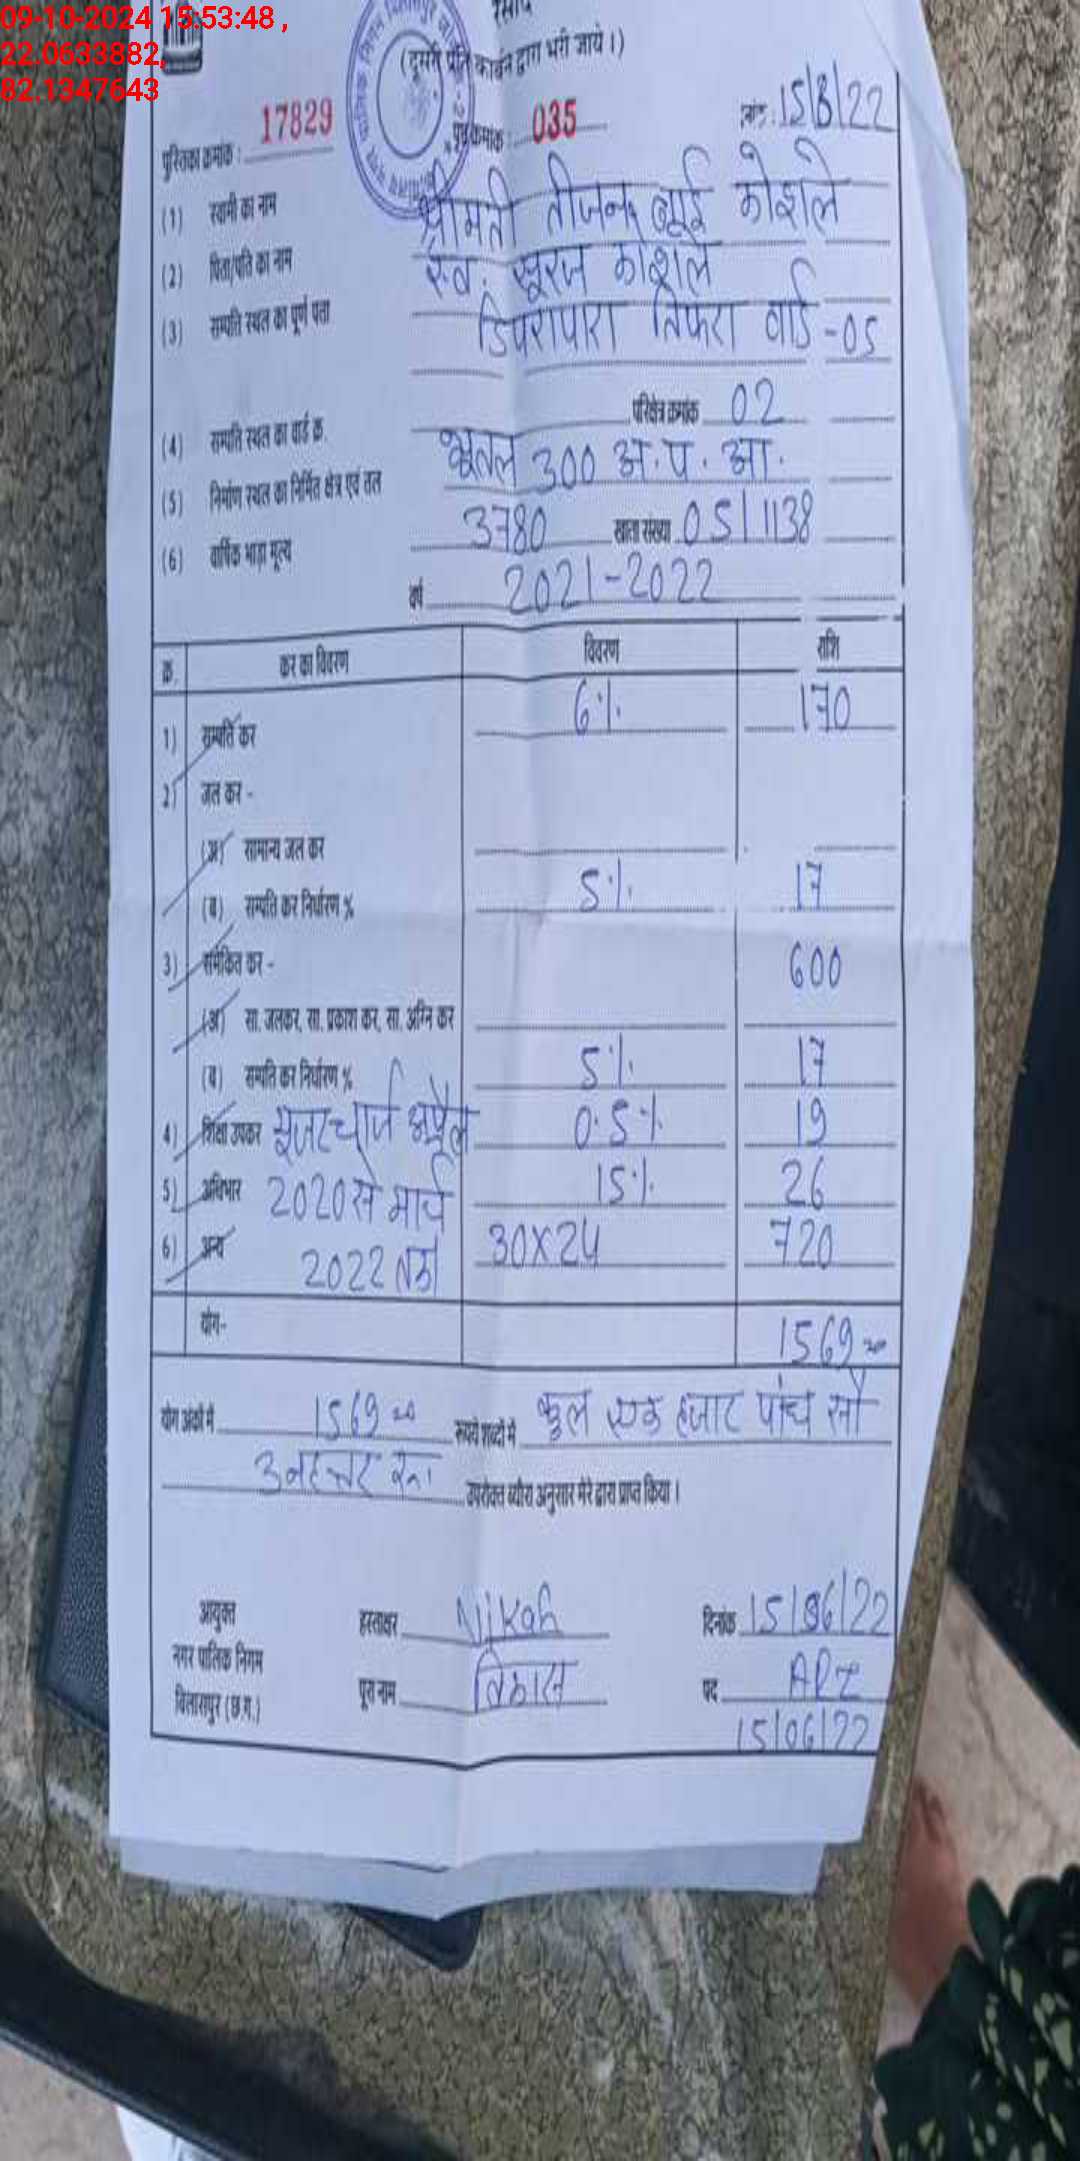 09-10-2024 15:53:48 ,
22.0633882,
82.1347643
रसीद
(दूसरी प्रति कार्बन द्वारा भरी जाये।)
पुस्तिका क्रमांक : 17829 पृष्ठ क्रमांक : 035 15/8/22
(1) स्वामी का नाम श्रीमती तीजन बाई कोशले
(2) पिता/पति का नाम स्व. सूरज कोशले
(3) सम्पति स्थल का पूर्ण पता डिपरापारा तिफरा वार्ड -05
(4) सम्पति स्थल का वार्ड क्र. परिक्षेत्र क्रमांक 02
(5) निर्माण स्थल का निर्मित क्षेत्र एवं तल भूतल 300 अ.प.आ.
(6) वार्षिक भाड़ा मूल्य 3780 खाता संख्या 05/1138
वर्ष 2021-2022
क्र. कर का विवरण विवरण राशि
1) सम्पति कर 6% 170
2) जल कर -
(अ) सामान्य जल कर
(ब) सम्पति कर निर्धारण % 5% 17
3) समेकित कर - 600
(अ) सा. जलकर, सा. प्रकाश कर, सा. अग्नि कर
(ब) सम्पति कर निर्धारण % 5% 17
4) शिक्षा उपकर यूजर चार्ज अप्रैल 0.5% 19
5) अधिभार 2020 से मार्च 15% 26
6) अन्य 2022 तक 30x24 720
योग- 1569
योग अंकों में 1569 रूपये शब्दों में कुल एक हजार पांच सौ
उनहत्तर रू. उपरोक्त ब्यौरा अनुसार मेरे द्वारा प्राप्त किया।
आयुक्त हस्ताक्षर Nikah दिनांक 15/06/22
नगर पालिक निगम
बिलासपुर (छ.ग.) पूरा नाम विकास पद ARI
15/06/22